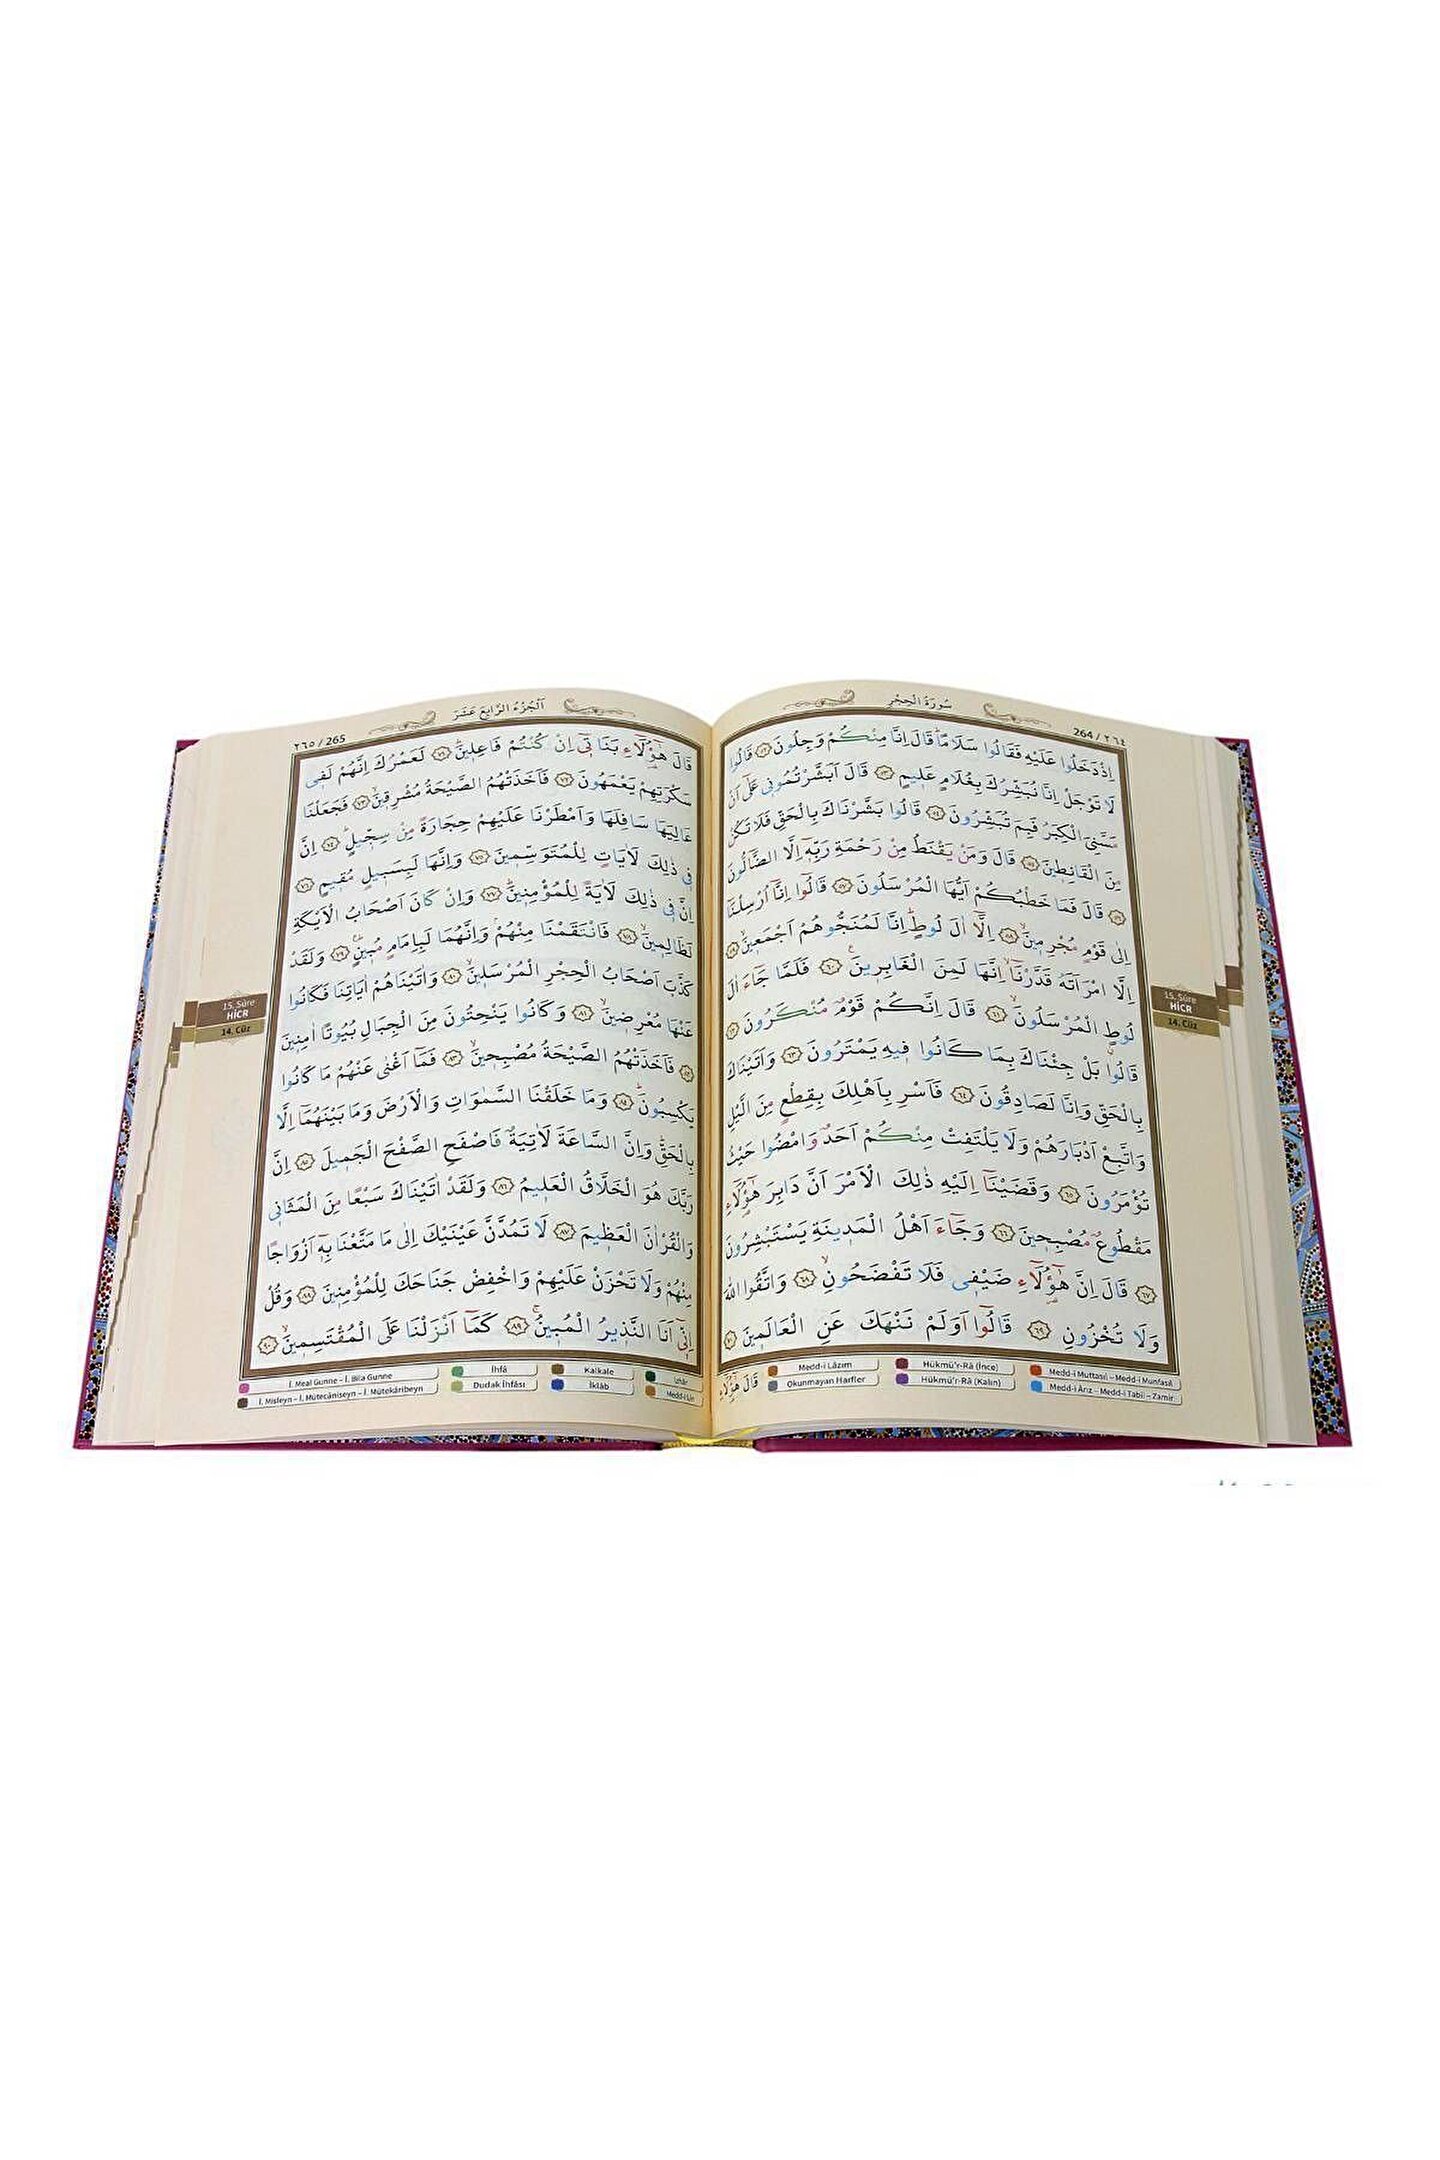 264 / ٢٦٤
سُورَةُ الْحِجْرِ
اِذْ دَخَلُوا عَلَيْهِ فَقَالُوا سَلَاماًۜ قَالَ اِنَّا مِنْكُمْ وَجِلُونَ ﴿٥٢﴾ قَالُوا
لَا تَوْجَلْ اِنَّا نُبَشِّرُكَ بِغُلَامٍ عَل۪يمٍ ﴿٥٣﴾ قَالَ اَبَشَّرْتُمُون۪ي عَلٰٓى اَنْ
مَسَّنِيَ الْكِبَرُ فَبِمَ تُبَشِّرُونَ ﴿٥٤﴾ قَالُوا بَشَّرْنَاكَ بِالْحَقِّ فَلَا تَكُنْ
مِنَ الْقَانِط۪ينَ ﴿٥٥﴾ قَالَ وَمَنْ يَقْنَطُ مِنْ رَحْمَةِ رَبِّه۪ٓ اِلَّا الضَّٓالُّونَ
﴿٥٦﴾ قَالَ فَمَا خَطْبُكُمْ اَيُّهَا الْمُرْسَلُونَ ﴿٥٧﴾ قَالُٓوا اِنَّٓا اُرْسِلْنَٓا
اِلٰى قَوْمٍ مُجْرِم۪ينَۙ ﴿٥٨﴾ اِلَّٓا اٰلَ لُوطٍۜ اِنَّا لَمُنَجُّوهُمْ اَجْمَع۪ينَۙ ﴿٥٩﴾
اِلَّا امْرَاَتَهُ قَدَّرْنَٓاۙ اِنَّهَا لَمِنَ الْغَابِر۪ينَ۟ ﴿٦٠﴾ فَلَمَّا جَٓاءَ اٰلَ
لُوطٍۨ الْمُرْسَلُونَۙ ﴿٦١﴾ قَالَ اِنَّكُمْ قَوْمٌ مُنْكَرُونَ ﴿٦٢﴾
قَالُوا بَلْ جِئْنَاكَ بِمَا كَانُوا ف۪يهِ يَمْتَرُونَ ﴿٦٣﴾ وَاَتَيْنَاكَ
بِالْحَقِّ وَاِنَّا لَصَادِقُونَ ﴿٦٤﴾ فَاَسْرِ بِاَهْلِكَ بِقِطْعٍ مِنَ الَّيْلِ
وَاتَّبِعْ اَدْبَارَهُمْ وَلَا يَلْتَفِتْ مِنْكُمْ اَحَدٌ وَامْضُوا حَيْثُ
تُؤْمَرُونَ ﴿٦٥﴾ وَقَضَيْنَٓا اِلَيْهِ ذٰلِكَ الْاَمْرَ اَنَّ دَابِرَ هٰٓؤُ۬لَٓاءِ
مَقْطُوعٌ مُصْبِح۪ينَ ﴿٦٦﴾ وَجَٓاءَ اَهْلُ الْمَد۪ينَةِ يَسْتَبْشِرُونَ
﴿٦٧﴾ قَالَ اِنَّ هٰٓؤُ۬لَٓاءِ ضَيْف۪ي فَلَا تَفْضَحُونِۙ ﴿٦٨﴾ وَاتَّقُوا اللّٰهَ
وَلَا تُخْزُونِ ﴿٦٩﴾ قَالُٓوا اَوَلَمْ نَنْهَكَ عَنِ الْعَالَم۪ينَ ﴿٧٠﴾
قَالَ هٰٓؤُ۬لَٓاءِ
Medd-i Lâzım
Hükmü'r-Râ (İnce)
Medd-i Muttasıl – Medd-i Munfasıl
Okunmayan Harfler
Hükmü'r-Râ (Kalın)
Medd-i Ârız – Medd-i Tabiî – Zamir
15. Sûre
HİCR
14. Cüz
اَلْجُزْءُ الرَّابِعَ عَشَرَ
٢٦٥ / 265
قَالَ هٰٓؤُ۬لَٓاءِ بَنَات۪ٓي اِنْ كُنْتُمْ فَاعِل۪ينَۜ ﴿٧١﴾ لَعَمْرُكَ اِنَّهُمْ لَف۪ي
سَكْرَتِهِمْ يَعْمَهُونَ ﴿٧٢﴾ فَاَخَذَتْهُمُ الصَّيْحَةُ مُشْرِق۪ينَۙ ﴿٧٣﴾ فَجَعَلْنَا
عَالِيَهَا سَافِلَهَا وَاَمْطَرْنَا عَلَيْهِمْ حِجَارَةً مِنْ سِجّ۪يلٍۜ ﴿٧٤﴾ اِنَّ
ف۪ي ذٰلِكَ لَاٰيَاتٍ لِلْمُتَوَسِّم۪ينَ ﴿٧٥﴾ وَاِنَّهَا لَبِسَب۪يلٍ مُق۪يمٍ ﴿٧٦﴾
اِنَّ ف۪ي ذٰلِكَ لَاٰيَةً لِلْمُؤْمِن۪ينَۜ ﴿٧٧﴾ وَاِنْ كَانَ اَصْحَابُ الْاَيْكَةِ
لَظَالِم۪ينَۙ ﴿٧٨﴾ فَانْتَقَمْنَا مِنْهُمْۢ وَاِنَّهُمَا لَبِاِمَامٍ مُب۪ينٍۜ۟ ﴿٧٩﴾ وَلَقَدْ
كَذَّبَ اَصْحَابُ الْحِجْرِ الْمُرْسَل۪ينَۙ ﴿٨٠﴾ وَاٰتَيْنَاهُمْ اٰيَاتِنَا فَكَانُوا
عَنْهَا مُعْرِض۪ينَۙ ﴿٨١﴾ وَكَانُوا يَنْحِتُونَ مِنَ الْجِبَالِ بُيُوتًا اٰمِن۪ينَ
﴿٨٢﴾ فَاَخَذَتْهُمُ الصَّيْحَةُ مُصْبِح۪ينَۙ ﴿٨٣﴾ فَمَٓا اَغْنٰى عَنْهُمْ مَا كَانُوا
يَكْسِبُونَۜ ﴿٨٤﴾ وَمَا خَلَقْنَا السَّمٰوَاتِ وَالْاَرْضَ وَمَا بَيْنَهُمَٓا اِلَّا
بِالْحَقِّۜ وَاِنَّ السَّاعَةَ لَاٰتِيَةٌ فَاصْفَحِ الصَّفْحَ الْجَم۪يلَ ﴿٨٥﴾ اِنَّ
رَبَّكَ هُوَ الْخَلَّاقُ الْعَل۪يمُ ﴿٨٦﴾ وَلَقَدْ اٰتَيْنَاكَ سَبْعًا مِنَ الْمَثَان۪ي
وَالْقُرْاٰنَ الْعَظ۪يمَ ﴿٨٧﴾ لَا تَمُدَّنَّ عَيْنَيْكَ اِلٰى مَا مَتَّعْنَا بِه۪ٓ اَزْوَاجًا
مِنْهُمْ وَلَا تَحْزَنْ عَلَيْهِمْ وَاخْفِضْ جَنَاحَكَ لِلْمُؤْمِن۪ينَ ﴿٨٨﴾ وَقُلْ
اِنّ۪ٓي اَنَا النَّذ۪يرُ الْمُب۪ينُۚ ﴿٨٩﴾ كَمَٓا اَنْزَلْنَا عَلَى الْمُقْتَسِم۪ينَۙ ﴿٩٠﴾
İ. Meal Gunne – İ. Bila Gunne
İhfâ
Kalkale
İzhâr
İ. Misleyn – İ. Mütecâniseyn – İ. Mütekâribeyn
Dudak İhfâsı
İklâb
Medd-i Lîn
15. Sûre
HİCR
14. Cüz